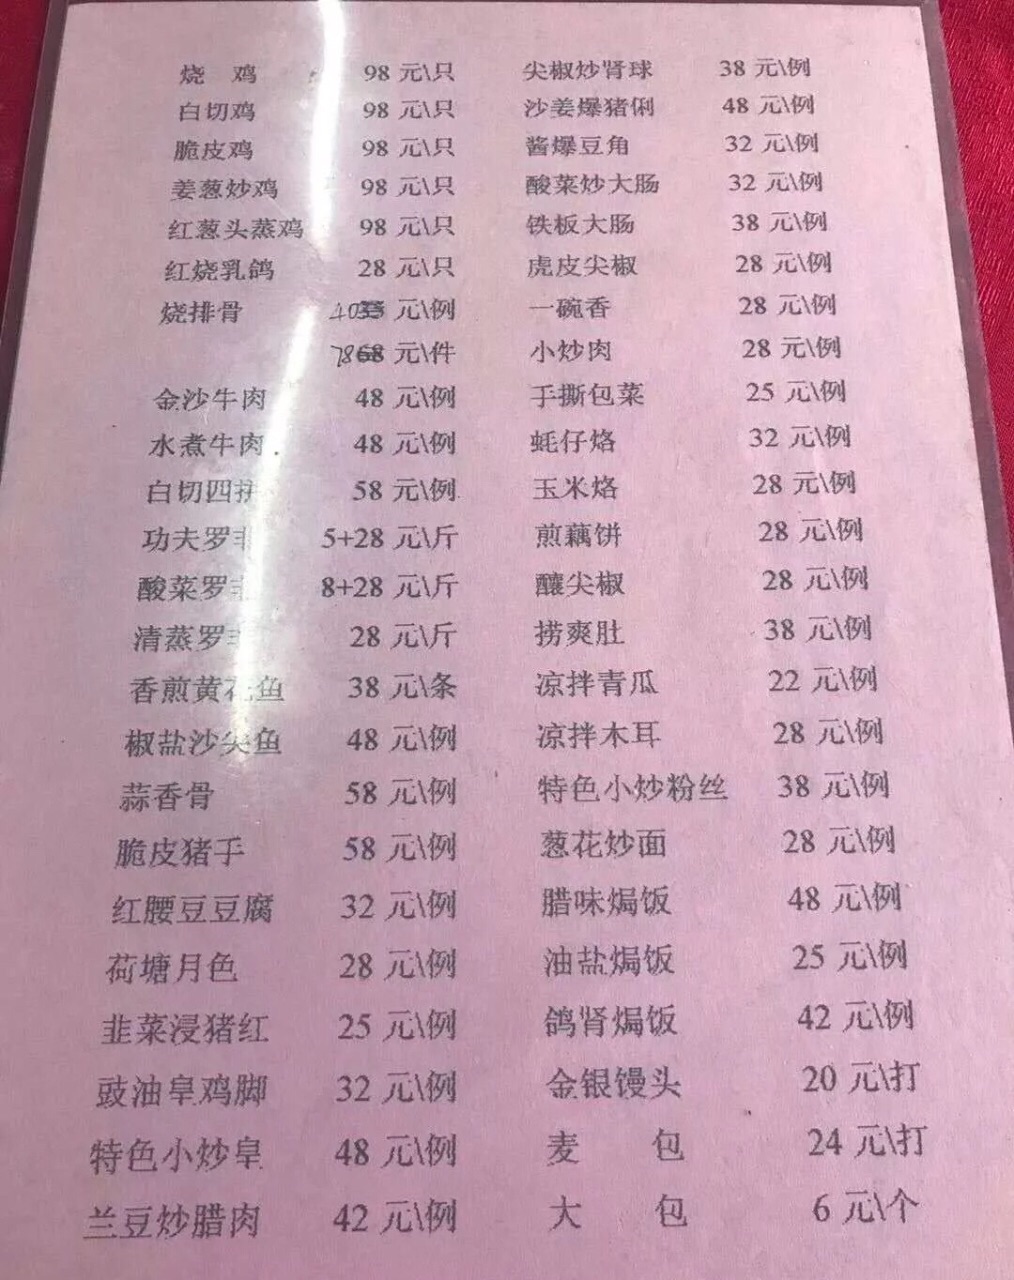 烧 鸡 98 元\只 尖椒炒肾球 38 元\例
白切鸡 98 元\只 沙姜爆猪俐 48 元\例
脆皮鸡 98 元\只 酱爆豆角 32 元\例
姜葱炒鸡 98 元\只 酸菜炒大肠 32 元\例
红葱头蒸鸡 98 元\只 铁板大肠 38 元\例
红烧乳鸽 28 元\只 虎皮尖椒 28 元\例
烧排骨 40 元\例 一碗香 28 元\例
78 元\件 小炒肉 28 元\例
金沙牛肉 48 元\例 手撕包菜 25 元\例
水煮牛肉. 48 元\例 蚝仔烙 32 元\例
白切四拼 58 元\例 玉米烙 28 元\例
功夫罗 5+28 元\斤 煎藕饼 28 元\例
酸菜罗 8+28 元\斤 釀尖椒 28 元\例
清蒸罗 28 元\斤 捞爽肚 38 元\例
香煎黄花鱼 38 元\条 凉拌青瓜 22 元\例
椒盐沙尖鱼 48 元\例 凉拌木耳 28 元\例
蒜香骨 58 元\例 特色小炒粉丝 38 元\例
脆皮猪手 58 元\例 葱花炒面 28 元\例
红腰豆豆腐 32 元\例 腊味焗饭 48 元\例
荷塘月色 28 元\例 油盐焗饭 25 元\例
韭菜浸猪红 25 元\例 鸽肾焗饭 42 元\例
豉油皇鸡脚 32 元\例 金银馒头 20 元\打
特色小炒皇 48 元\例 麦 包 24 元\打
兰豆炒腊肉 42 元\例 大 包 6 元\个